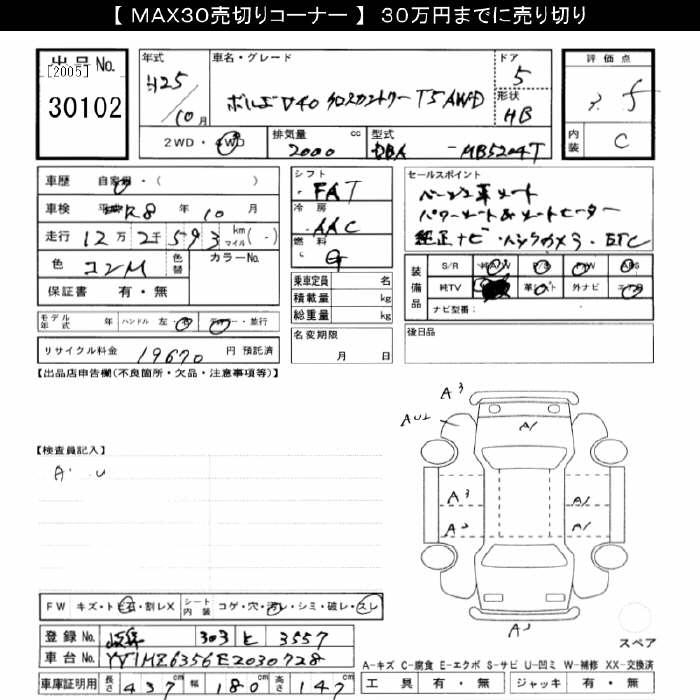 【 MAX30売切りコーナー 】 30万円までに売り切り
出品 No.
[2005]
30102
年式
H25
10月
車名・グレード
ボルボV40 クロスカントリー T5 AWD
ドア
5
形状
HB
2WD・4WD
排気量 cc
2000
型式
DBA -MB5204T
評価点
内装
C
車歴 自家用・( )
車検 R8 年 10 月
走行 12万 2千 593 km マイル ( )
色
色替
カラーNo.
保証書 有・無
モデル年式 年 ハンドル 左・右 ディーラー・並行
リサイクル料金 19670 円 預託済
シフト
FAT
冷房
AAC
燃料
G
乗車定員 名
積載量 kg
総重量 kg
名変期限
月 日
セールスポイント
ベージュ革シート
パワーシート&シートヒーター
純正ナビ・バックカメラ・ETC
装備品
S/R 純A/W P/S P/W ABS
純TV 革シート 外ナビ エアB
ナビ型番:
後日品
【出品店申告欄(不良箇所・欠品・注意事項等)】
【検査員記入】
A' U
A3
AU1
A1
A3
A1
A2
A1
A2
スペア
FW キズ・トビ石・割レX シート内装 コゲ・穴・汚レ・シミ・破レ・スレ
登録 No. 岐阜 303 と 3557
車台 No. YV1MZ6356E2030728
車庫証明用 長さ 437cm 幅 180cm 高さ 147cm
A-キズ C-腐食 E-エクボ S-サビ U-凹ミ W-補修 XX-交換済
工具 有・無 ジャッキ 有・無